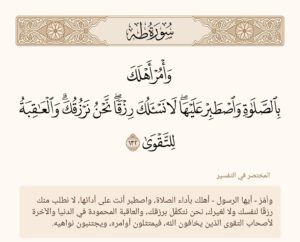 سُورَةُ طه
وَأْمُرْ أَهْلَكَ
بِٱلصَّلَوٰةِ وَٱصْطَبِرْ عَلَيْهَا ۖ لَا نَسْـَٔلُكَ رِزْقًا ۖ نَّحْنُ نَرْزُقُكَ ۗ وَٱلْعَـٰقِبَةُ
لِلتَّقْوَىٰ ١٣٢
المختصر في التفسير
وأمُرْ - أيها الرسول - أهلك بأداء الصلاة، واصطبر أنت على أدائها، لا نطلب منك
رزقًا لنفسك ولا لغيرك، نحن نتكفل برزقك، والعاقبة المحمودة في الدنيا والآخرة
لأصحاب التقوى الذين يخافون الله، فيمتثلون أوامره، ويجتنبون نواهيه.